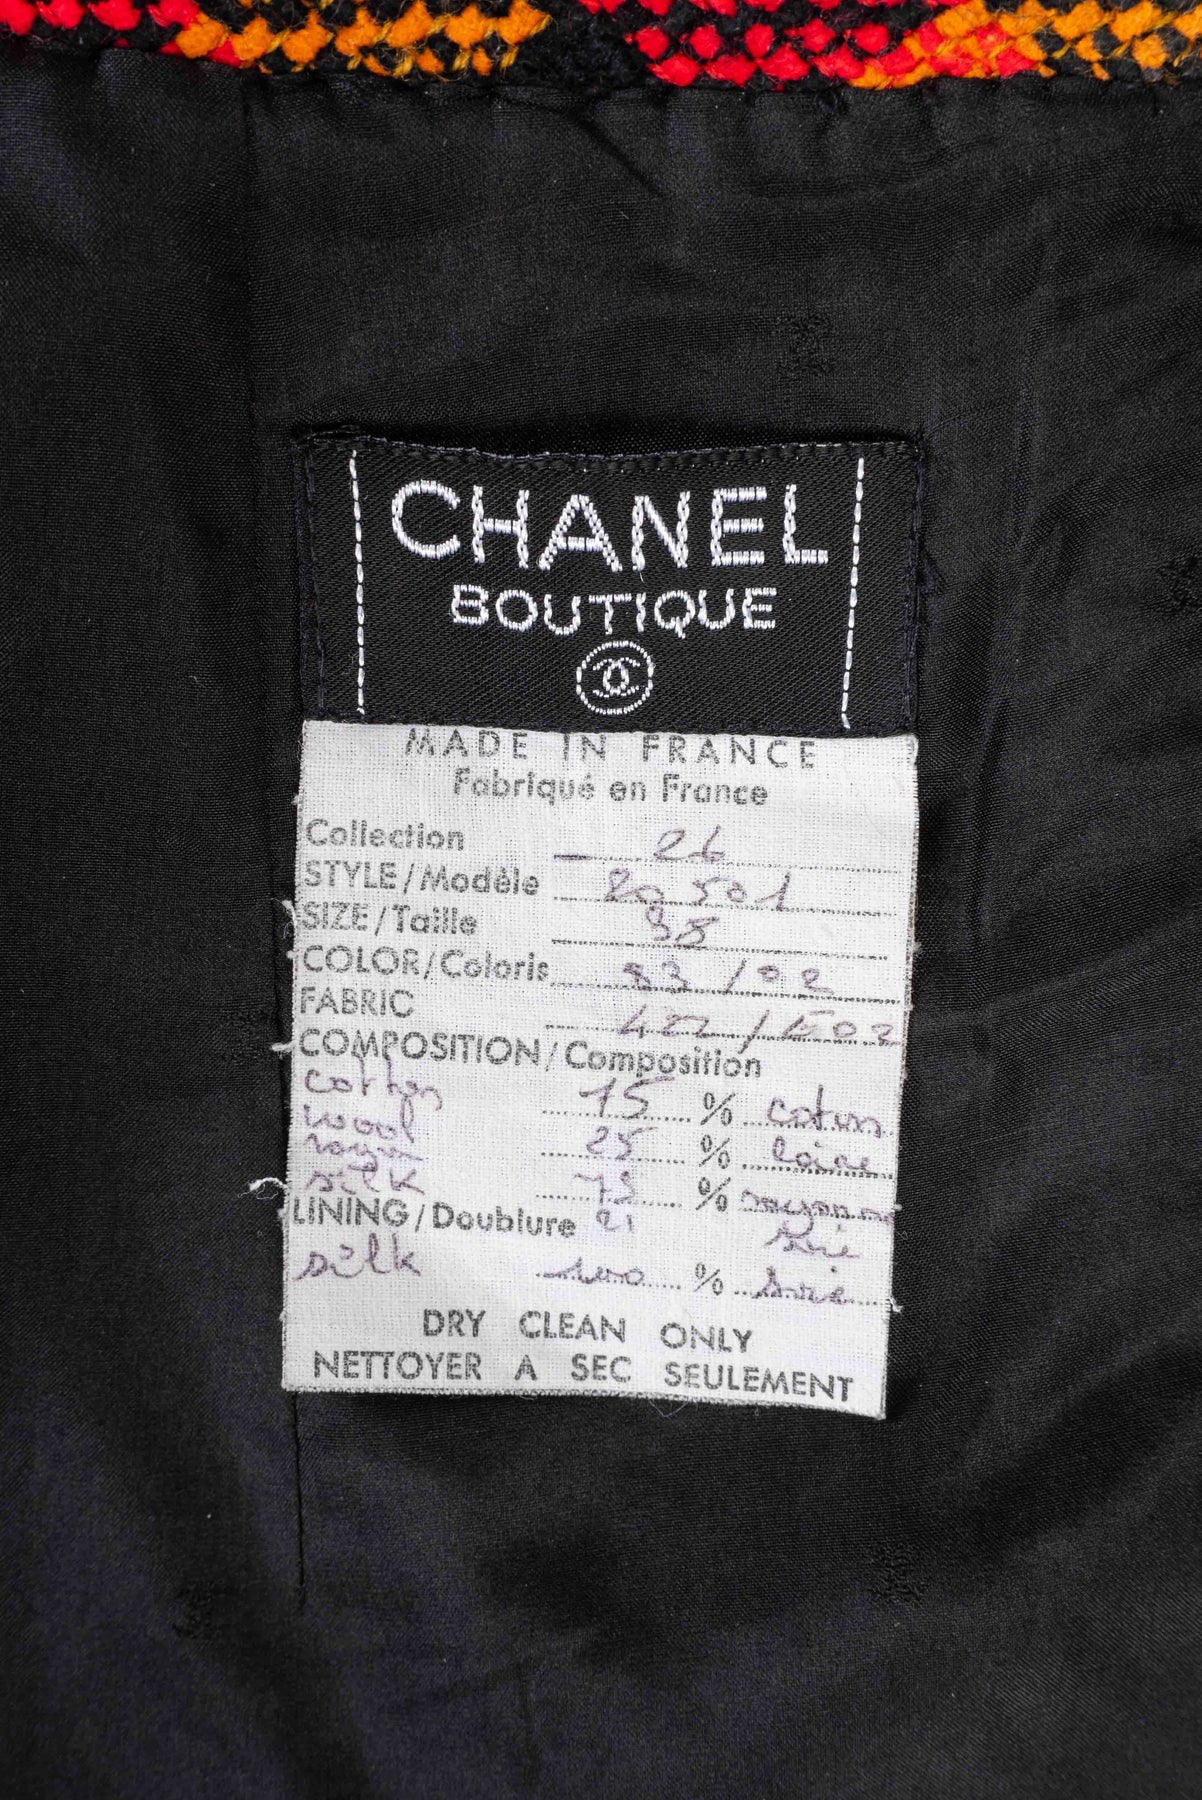 CHANEL
BOUTIQUE
MADE IN FRANCE
Fabriqué en France
Collection 26
STYLE/Modèle 20 501
SIZE/Taille 38
COLOR/Coloris 83 / 02
FABRIC
COMPOSITION/Composition
cotton 15 % coton
wool 25 % laine
rayon %
silk 21 soie
LINING/Doublure
silk 100 % soie
DRY CLEAN ONLY
NETTOYER A SEC SEULEMENT